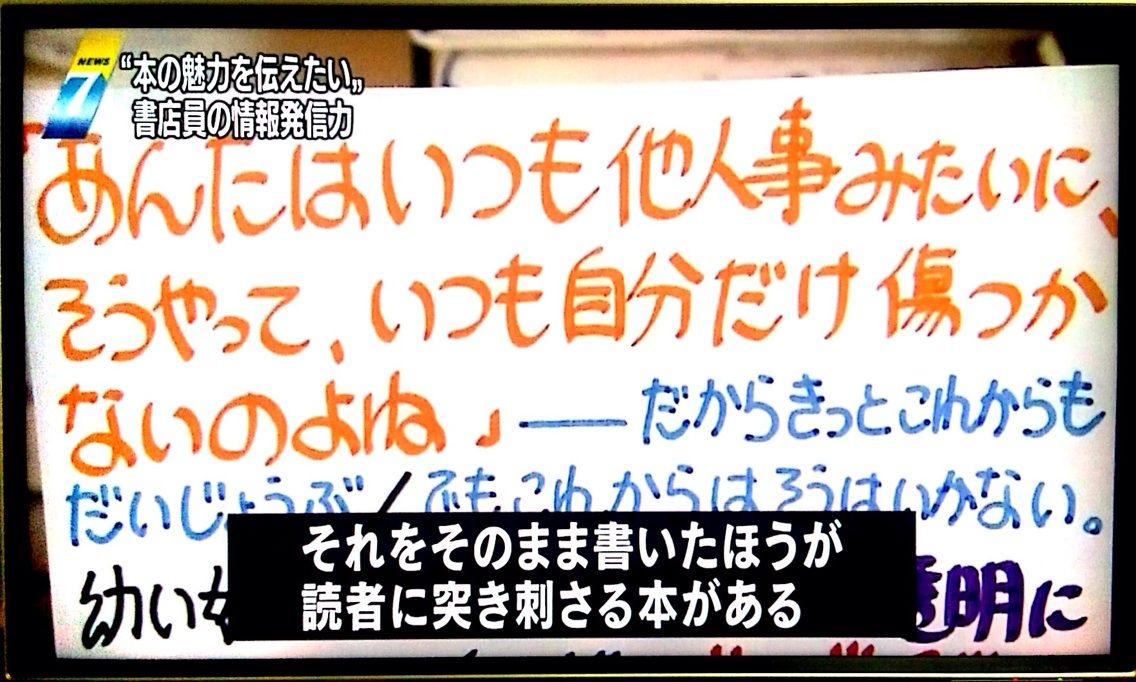 NEWS
7
“本の魅力を伝えたい„
書店員の情報発信力
「あんたはいつも他人事みたいに、
そうやって、いつも自分だけ傷つか
ないのよね」――だからきっとこれからも
だいじょうぶ/でもこれからはそうはいかない。
幼い 透明に
それをそのまま書いたほうが
読者に突き刺さる本がある